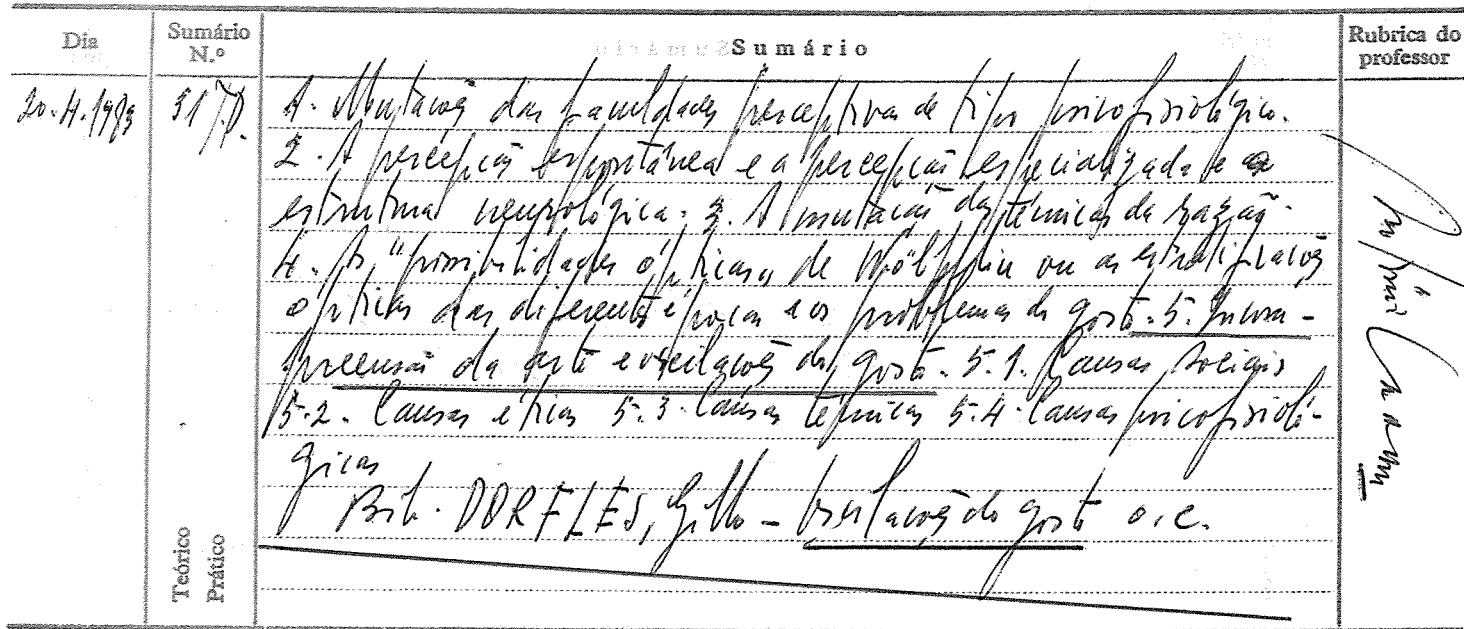 Dia
Sumário N.º
Sumário
Rubrica do professor
20-4-1983
51 T.P.
1. Mutações das faculdades perceptivas de tipo psicofisiológico.
2. A percepção espontânea e a percepção especializada e a
estrutura neurológica. 3. A mutação das técnicas da
4. As "possibilidades ópticas" de Wölfflin ou as estratificações
ópticas das diferentes épocas e os problemas do gosto. 5. Incom-
preensão da arte e oscilações do gosto. 5.1. Causas sociais
5.2. Causas éticas 5.3. Causas técnicas 5.4. Causas psicofisioló-
gicas
Bib. DORFLES, Gillo - Oscilações do gosto o.c.
Teórico
Prático